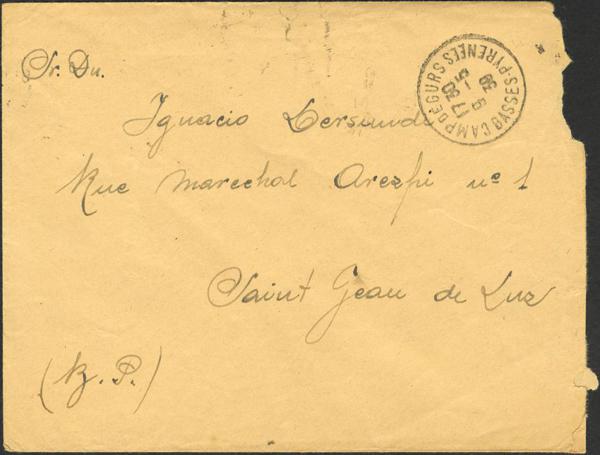 Sr. Dn.
Ignacio Lersundi
Rue Marechal Arezpi nº 1
Saint Jean de Luz
(B. P.)
CAMP DE GURS BASSES-PYRENEES
17 30
5 - 5
39